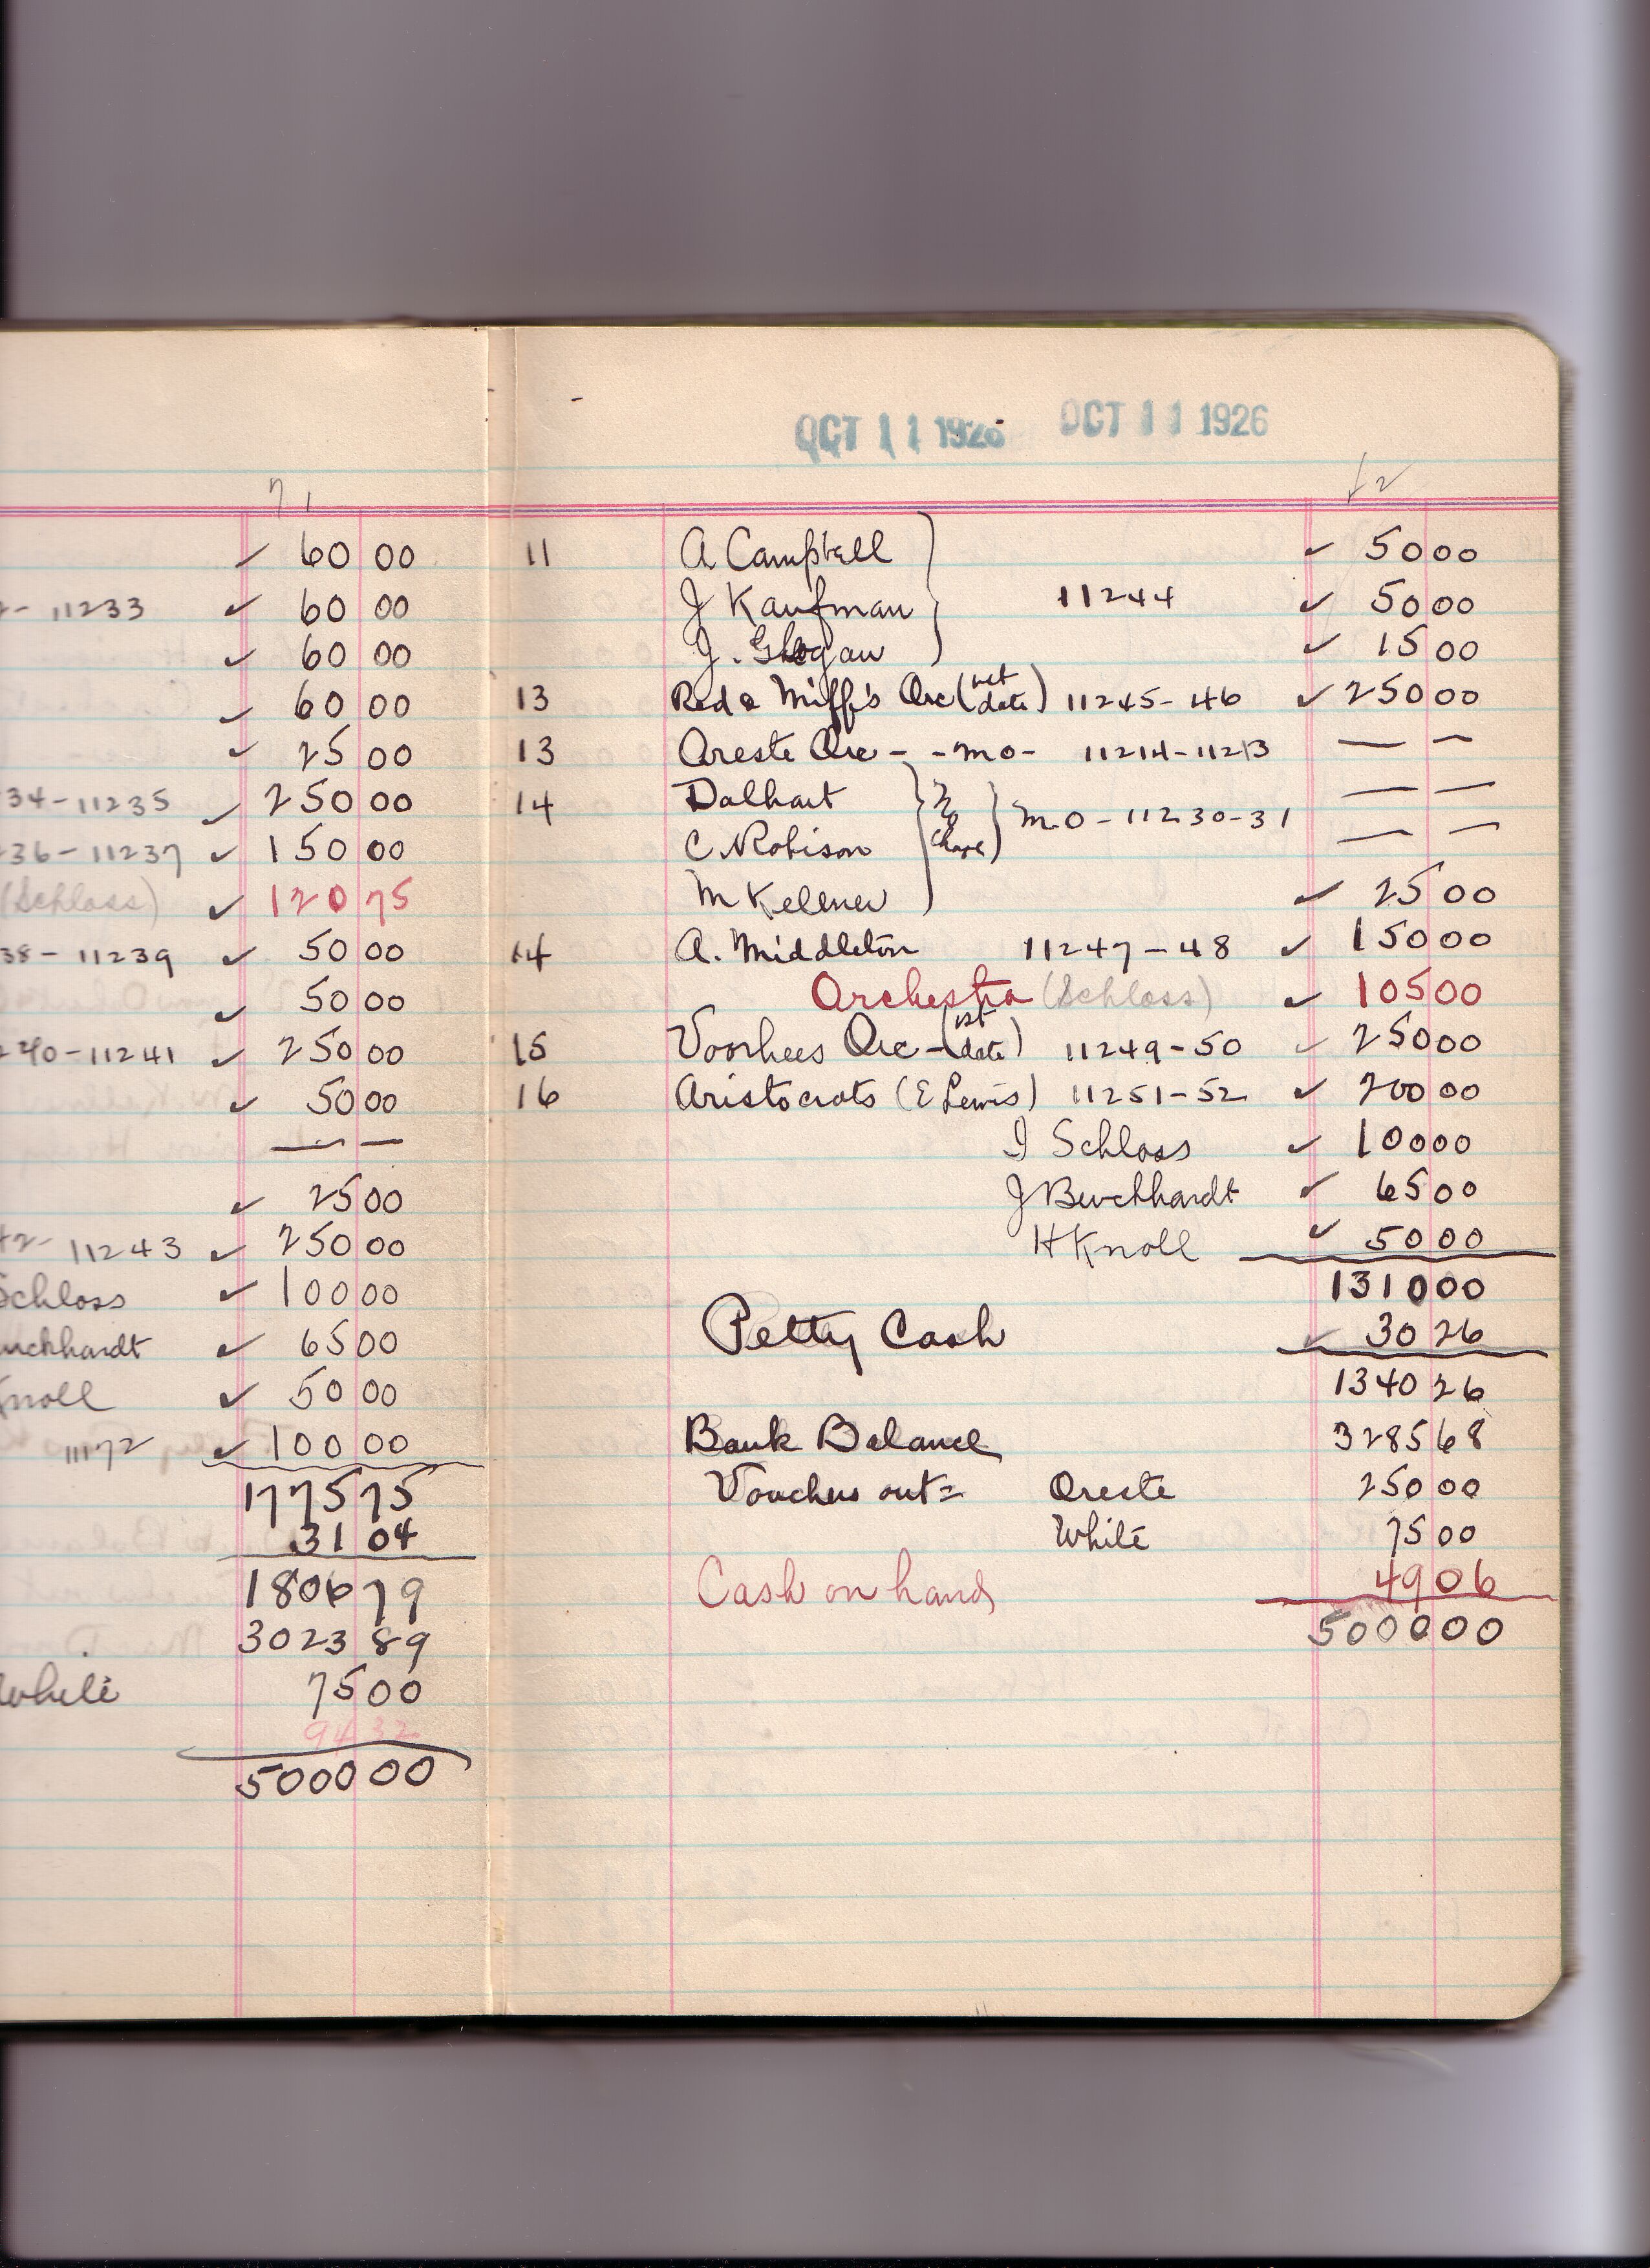 71
✓ 60 00
- 11233 ✓ 60 00
✓ 60 00
✓ 60 00
✓ 25 00
34-11235 ✓ 250 00
36-11237 ✓ 150 00
(Schloss) ✓ 120 75
38-11239 ✓ 50 00
✓ 50 00
240-11241 ✓ 250 00
✓ 50 00
— —
✓ 25 00
42- 11243 ✓ 250 00
Schloss ✓ 100 00
urckhardt ✓ 65 00
Knoll ✓ 50 00
11172 ✓ 100 00
1775 75
31 04
1806 79
3023 89
White 75 00
94 32
5000 00
OCT 11 1926 OCT 11 1926
72
11 A Campbell ✓ 50 00
J Kaufman 11244 ✓ 50 00
J. Glogau ✓ 15 00
13 Red & Miff's Orc (1st date) 11245-46 ✓ 250 00
13 Oreste Orc - - M O - 11214-11213 — —
14 Dalhart — —
C Robison M.O - 11230-31 — —
M Kellner ✓ 25 00
14 A. Middleton 11247-48 ✓ 150 00
Orchestra (Schloss) ✓ 105 00
15 Voorhees Orc - (1st date) 11249-50 ✓ 250 00
16 Aristocrats (E Lewis) 11251-52 ✓ 200 00
I Schloss ✓ 100 00
J Burckhardt ✓ 65 00
H Knoll ✓ 50 00
1310 00
Petty Cash ✓ 30 26
1340 26
Bank Balance 3285 68
Vouchers out= Oreste 250 00
White 75 00
Cash on hand 49 06
5000 00